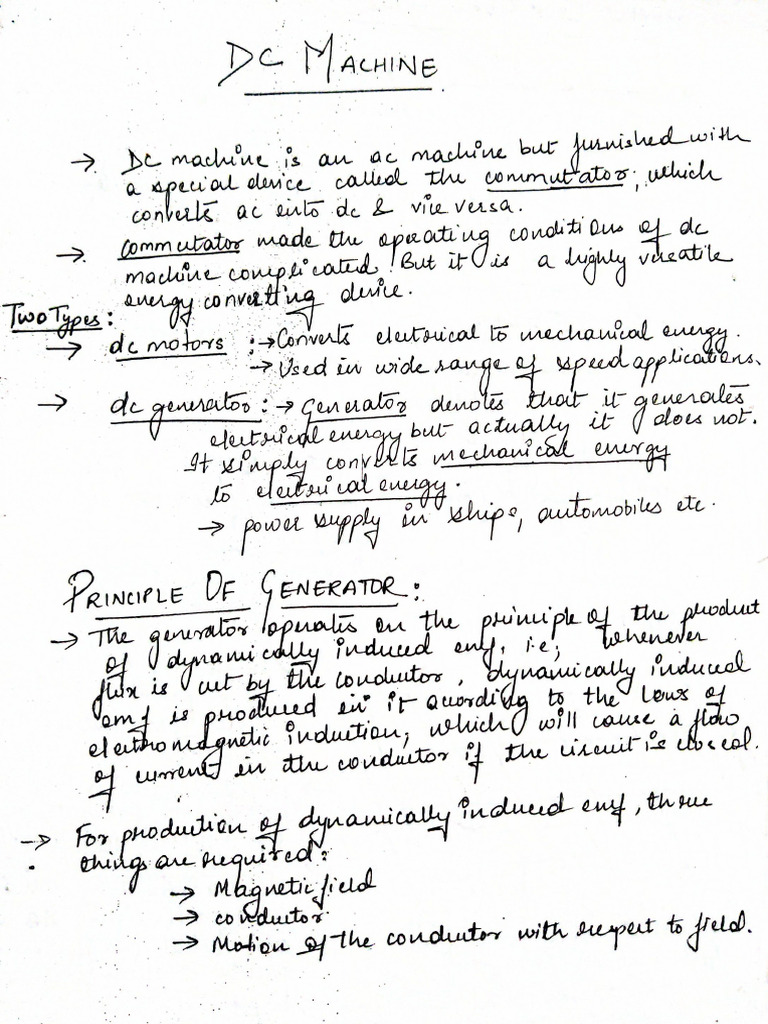 DC MACHINE
→ DC machine is an ac machine but furnished with
a special device called the commutator, which
converts ac into dc & vice versa.
→ commutator made the operating conditions of dc
machine complicated. But it is a highly versatile
energy converting device.
Two Types:
→ dc motors :→ Converts electrical to mechanical energy.
→ Used in wide range of speed applications.
→ dc generator: → Generator denotes that it generates
electrical energy but actually it does not.
It simply converts mechanical energy
to electrical energy.
→ power supply in ships, automobiles etc.
PRINCIPLE OF GENERATOR:
→ The generator operates on the principle of the product
of dynamically induced emf. i.e; whenever
flux is cut by the conductor, dynamically induced
emf is produced in it according to the laws of
electromagnetic induction, which will cause a flow
of current in the conductor if the circuit is closed.
→ For production of dynamically induced emf, three
things are required:
→ Magnetic field
→ conductor
→ Motion of the conductor with respect to field.